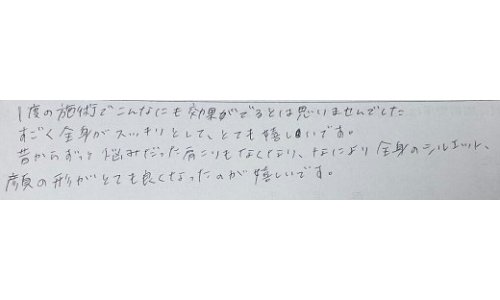 1度の施術でこんなにも効果がでるとは思いませんでした
すごく全身がスッキリとして、とても嬉しいです。
昔からずっと悩みだった肩こりもなくなり、なにより全身のシルエット、
顔の形がとても良くなったのが嬉しいです。